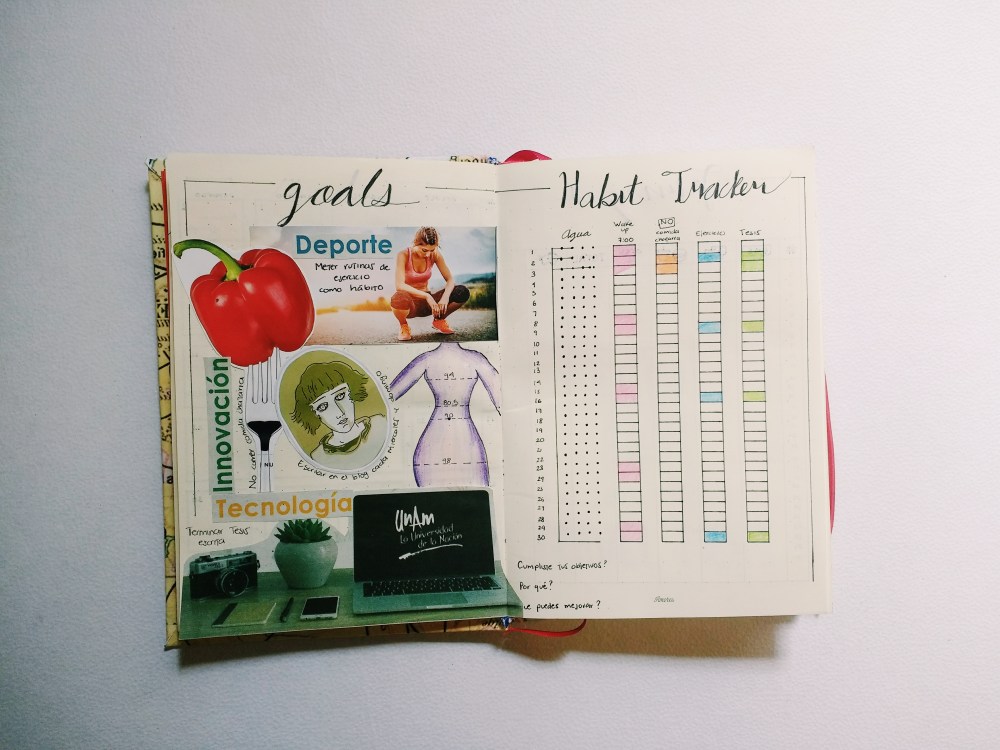 goals
Deporte
Meter rutinas de
ejercicio
como hábito
Innovación
No comer comida chatarra
Escribir en el blog cada miercoles y
domingo
94
80.5
90
98
Tecnología
Terminar Tesis
escrita
UnAm
La Universidad
de la Nación
Habit Tracker
Agua
Wake
up
7:00
NO
comida
chatarra
Ejercicio
Tesis
1
2
3
4
5
6
7
8
9
10
11
12
13
14
15
16
17
18
19
20
21
22
23
24
25
26
27
28
29
30
Cumpliste tus objetivos?
Por qué?
que puedes mejorar?